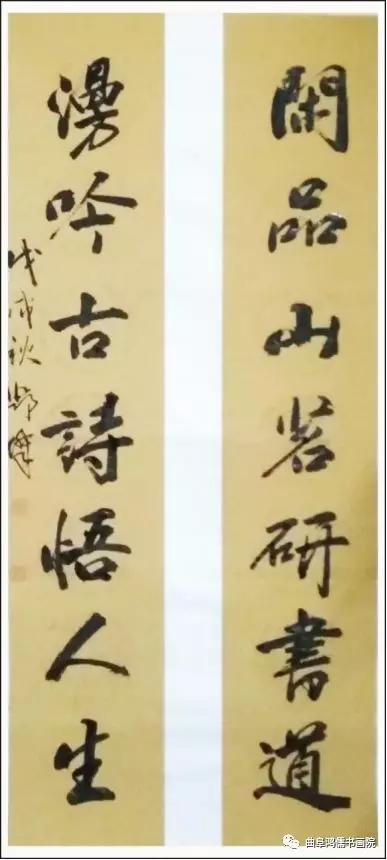 閑品山茗研書道
漫吟古詩悟人生
戊戌秋
曲阜鸿儒书画院